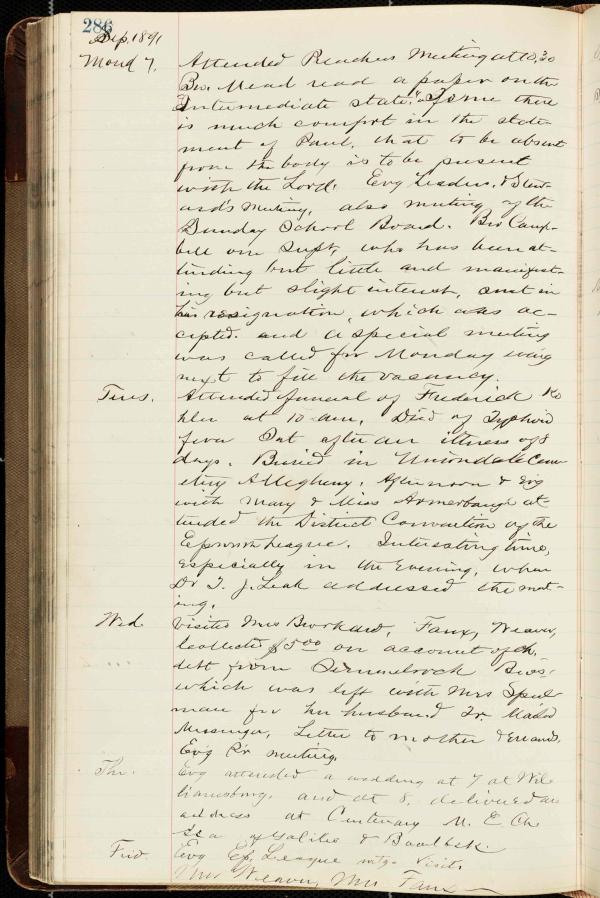 286
Sep. 1891
Mond 7. Attended Preachers Meeting at 10,30
Bro. Mead read a paper on the
"Intermediate state." To me there
is much comfort in the state-
ment of Paul, that to be absent
from the body is to be present
with the Lord. Evg Leaders, & Stew-
ard's Meeting, also meeting of the
Sunday School Board. Bro Camp-
bell our Supt, who has been at-
tending but little and manifest-
ing but slight interest, sent in
his resignation, which was ac-
cepted. and a special meeting
was called for Monday evng
next to fill the vacancy.
Tues. Attended funeral of Frederick Ko
hler at 10 am, Died of Typhoid
fever Sat after an illness of 8
days. Buried in Uniondale Cem
etery Allegheny. Afternoon & Evg
with Mary & Miss Armerbaugh at-
tended the District Convention of the
Epworth League. Interesting time,
especially in the Evening, when
Dr T. J. Leak addressed the meet-
ing.
Wed. Visited Mrs Burkard, Faux, Weaver,
Collected $5.00 on account of ch.
debt from Bros.
which was left with Mrs Speel
man for her husband Tr. Mailed
Messenger, Letter to mother & errands,
Ev'g Pr meeting.
Thr. Evg attended a wedding at 7 at Wil
kinsburg. and at 8, delivered an
address at Centenary M. E. Ch.
& Baalbek.
Frid. Evg Ep. League mtg. Visits
Mrs Weaver, Mrs Faux